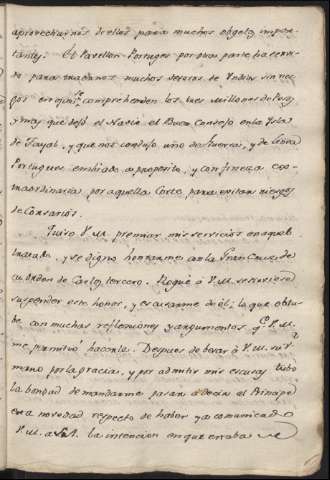 aprovecharnos de ellos para muchos objetos impor-
tantes. El Pavellon Portugues por otra parte ha servi-
do para traernos muchos tesoros de Yndias sin ries-
gos en que se comprehenden los tres millones de Pesos,
y mas que dejó el Navio el Buen Consejo en la Ysla
de Fayal, y que nos condujo uno de Guerra, y de Linea
Portugues embiado a proposito, y con fineza ex-
traordinaria por aquella Corte para evitar riesgos
de Corsarios.
Quiso V.M. premiar mis servicios en aquel
tratado, y se dignó honrarme con la Gran Cruz de
su orden de Carlos tercero. Rogué á V.M. se sirviese
suspender este honor, y escusarme de él; lo que obtu-
be con muchas reflexiones y argumentos que V.M.
me permitió hacerle. Despues de besar á V.M. su Rl.
mano por la gracia, y por admitir mis escusas tubo
la bondad de mandarme pasar a decir al Principe
esta novedad respecto de haber ya comunicado
V.M. a S.A. la intencion en que estaba de